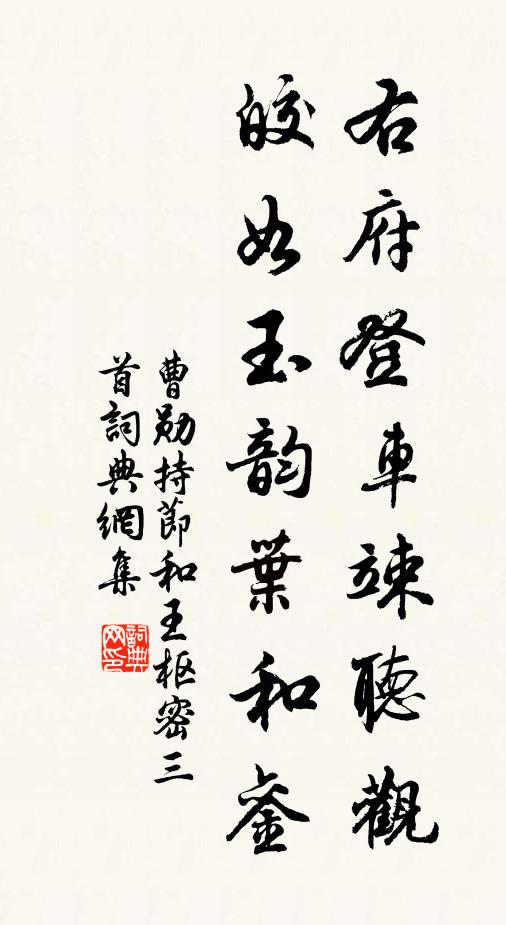 右府登車竦聽觀
皎如玉韵葉和鑾
曹勛持節和王枢密三
首詞典網集
詞典
网印